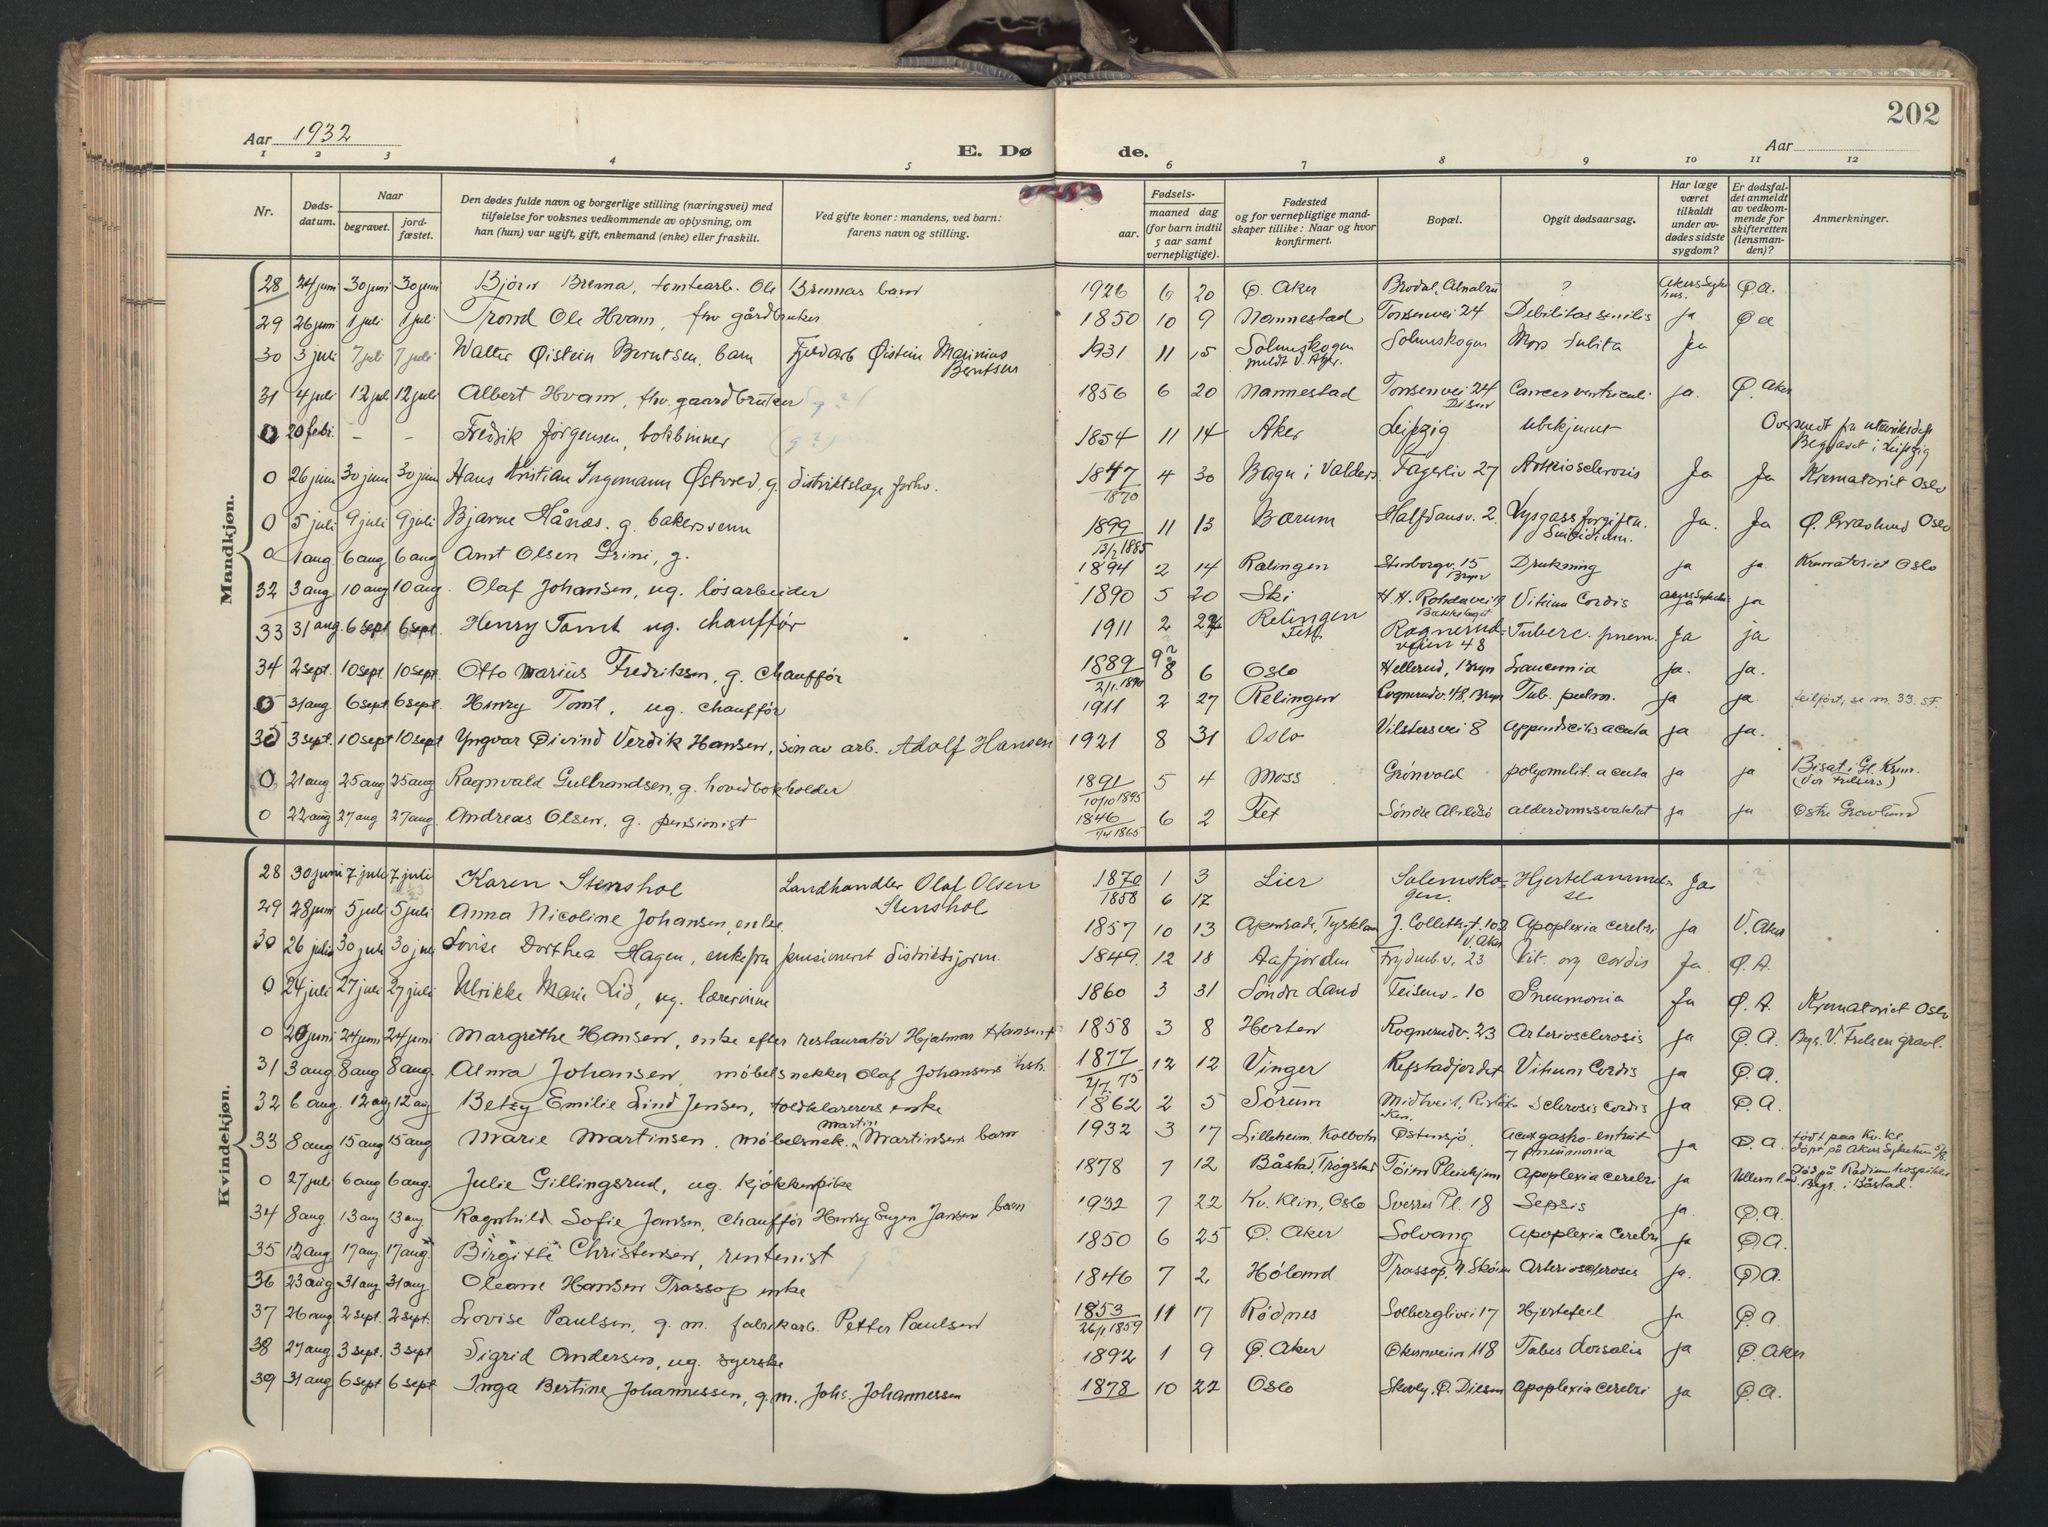 202
Aar 1932
E. Døde.
Aar
1 2 3 4 5 6 7 8 9 10 11 12
Nr.
Døds-datum.
Naar
begravet.
jord-fæstet.
Den dødes fulde navn og borgerlige stilling (næringsvei) med
tilføielse for voksnes vedkommende av oplysning, om
han (hun) var ugift, gift, enkemand (enke) eller fraskilt.
Ved gifte koner: mandens, ved barn:
farens navn og stilling.
Fødsels-
aar.
maaned dag
(for barn indtil
5 aar samt
vernepligtige).
Fødested
og for vernepligtige mand-
skaper tillike: Naar og hvor
konfirmert.
Bopæl.
Opgit dødsaarsag.
Har læge
været
tilkaldt
under av-
dødes sidste
sygdom?
Er dødsfal-
det anmeldt
av vedkom-
mende for
skifteretten
(lensman-
den)?
Anmerkninger.
Mandkjøn.
28 24 juni 30 juni 30 juni Bjørn Brenna, tomtearb. Ole Brennas barn 1926 6 20 Ø. Aker Brodal, Alnabru ? Akers Sykehus. Ø a.
29 26 juni 1 juli 1 juli Trond Ole Hvam, fhv gårdbruker 1850 10 9 Nannestad Tonsenvei 24 Debilitas senilis ja Ø a
30 3 juli 7 juli 7 juli Walter Øistein Berntsen, barn Fjeldarb Øistein Marinius Berntsen 1931 11 15 Solmskogen Solmskogen Mors Subita Ja
31 4 juli 12 juli 12 juli Albert Hvam, fhv. gaardbruker (g?) 1856 6 20 Nannestad Tonsenvei 24 Disen Cancer ventriculi ja. Ø. Aker
0 20 febr. - - Fredrik Jørgensen, bokbinner (g?) 1854 11 14 Aker Leipzig ubekjennt Oversendt fra utenriksdept Begravet i Leipzig
0 26 juni 30 juni 30 juni Hans Kristian Ingemann Østved, g. distriktslæge forhv. 1847 1870 4 30 Bagn i Valders Fagerliv 27 Arteriosclerosis Ja Ja Krematoriet Oslo
0 5 juli 9 juli 9 juli Bjarne Hånæs. g. bakersvenn 1899 11 13 Bærum Halfdansv. 2. Lysgassforgiftn. Suicidium. Ja. Ja Ø. Gravlund Oslo
0 1 aug. 6 aug 6 aug Amt Olsen Grini, g. 13/2 1885 1894 2 14 Rælingen Stenborgv. 15 Bryn Drukning ja ja. Krematoriet Oslo
32 3 aug 10 aug 10 aug. Olaf Johansen, ug. løsarbeider 1890 5 20 Ski Bekkelaget Vitium Cordis ja ja
33 31 aug 6 sept 6 sept. Henry Tomt ug. chauffør 1911 2 27 Relingen Fet Rognerud-veien 48 Tuberc. pnem. Ja ja
34 2 sept. 10 sept. 10 sept. Otto Marius Fredriksen, g. chauffør 1889 2/1 1890 9? 8 6 Oslo Hellerud, Bryn Leucemia ja. ja.
0 31 aug 6 sept 6 sept. Henry Tomt, ug. chauffør 1911 2 27 Relingen Rognerudv. 48, Bryn Tub. pulm. ja ja. feilført, se nr. 33.
35 3 sept. 10 sept 10 sept. Yngvar Øivind Verdik Hansen, sønav arb. Adolf Hansen 1921 8 31 Oslo Vilstersvei 8 appendicitis acuta ja ja.
0 21 aug 25 aug 25 aug Ragnvald Gulbrandsen, g. hovedbokholder 1891 10/10 1895 5 4 Moss Grønvold polyomelit. acuta ja ja Bisat i Gl. Krem. (Vor Frelsers)
0 22 aug 27 aug 27 aug. Andreas Olsen, g. pensionist 1846 1/4 1865 6 2 Fet Søndre Abildsø alderdomssvakhet ja ja Østre Gravlund
Kvindekjøn.
28 30 juni 7 juli 7 juli Karen Stenshol Landhandler Olaf Olsen Stenshol 1870 1 3 Lier Solemskogen. Hjertelammelse Ja
29 28 juni 5 juli 5 juli Anna Nicoline Johansen, enke 1858 6 17 1857 10 13 Apenrade, Tyskland J. Colletts g. 102 V. Aker Apoplexia cerebri ja V. Aker
30 26 juli 30 juli 30 juli Lovise Dorthea Hagen, enke fra pensioneret distriktsjorm. 1849. 12 18 Aafjorden Frydenb v. 23 Vit. org cordis Ja. Ø. A.
0 24 juli 27 juli 27 juli Ulrikke Marie Lid, ug. lærerinne 1860 3 31 Søndre Land Teisenv. 10 Pneumonia Ja Ø. A Krematoriet Oslo
0 20 juni 24 juni 24 juni Margrethe Hansen, enke efter restauratør Hjalmar Hansen 1858 3 8 Horten Rognerudv. 23 Arteriosclerosis ja Ø. A. Begr. V. Frelsers gravl.
31 3 aug. 8 aug 8 aug. Alma Johansen, møbelsnekker Olaf Johansens hstr. 1877 2/7. 75 12 12 Vinger Refstadjordet Vitium Cordis ja Ø. A.
32 6 aug. 12 aug 12 aug Betzy Emilie Lind Jensen, toldklarerers enke 1862 2 5 Sørum Sclerosis cordis ja Ø. A.
33 8 aug 15 aug 15 aug Marie Martinsen, møbelsnek. Martin Martinsens barn 1932 3 17 Lilleheim, Kolbotn Østensjø. Acut gastro-enterit + pneumonia ja Ø. a. født paa Kv. kl. døpt på Aker Sykehus 5/8.
0 27 juli 6 aug 6 aug. Julie Gillingsrud, ug. kjøkkenpike 1878 7 12 Båstad, Trøgstad Tøien Pleiehjem Apoplexia cerebri ja Ullern Død på Radiumhospitalet Begr. i Båstad.
34 8 aug. 13 aug 13 aug Ragnhild Sofie Jansen, chauffør Henry Eugen Jansens barn 1932 7 22 Kv. Klin, Oslo Sverres Pl. 18 Sepsis ja. Ø. A.
35 12 aug 17 aug. 17 aug Birgitte Christensen, rentenist 1850 6 25 Ø. Aker Solvang Apoplexia Cerebri ja Ø A.
36 23 aug 31 aug 31 aug Oleane Hansen Trassop enke 1846 7 2 Høland Trassop, N. Skøien Arteriosclerosis ja. Ø A.
37 26 aug 2 sept. 2 sept. Lovise Paulsen, g. m. fabrikarb. Petter Paulsen 1853 26/1 1859 11 17 Rødnes Solberglivei 17 Hjertefeil ja Ø. a.
38 27 aug. 3 sept. 3 sept Sigrid Andersen, ug. syerske 1892 1 9 Ø. Aker Økernveien 118 Tabes dorsalis ja Ø. Aker
39 31 aug 6 sept 6 sept. Inga Bertine Johannessen, g. m. Johs. Johannessen 1878 10 22 Oslo Skovly, Ø. Disen Apoplexia Cerebri ja Ø A.